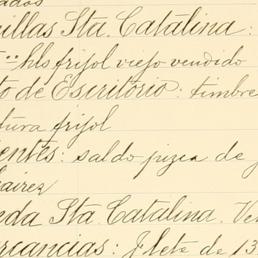 illas Sta. Catalina:
hls frijol viejo vendido
to de Escritorio: timbre
tura frijol
ientes: saldo pizca de
aires
eda Sta. Catalina. Ve
rcancias: Flete de 13